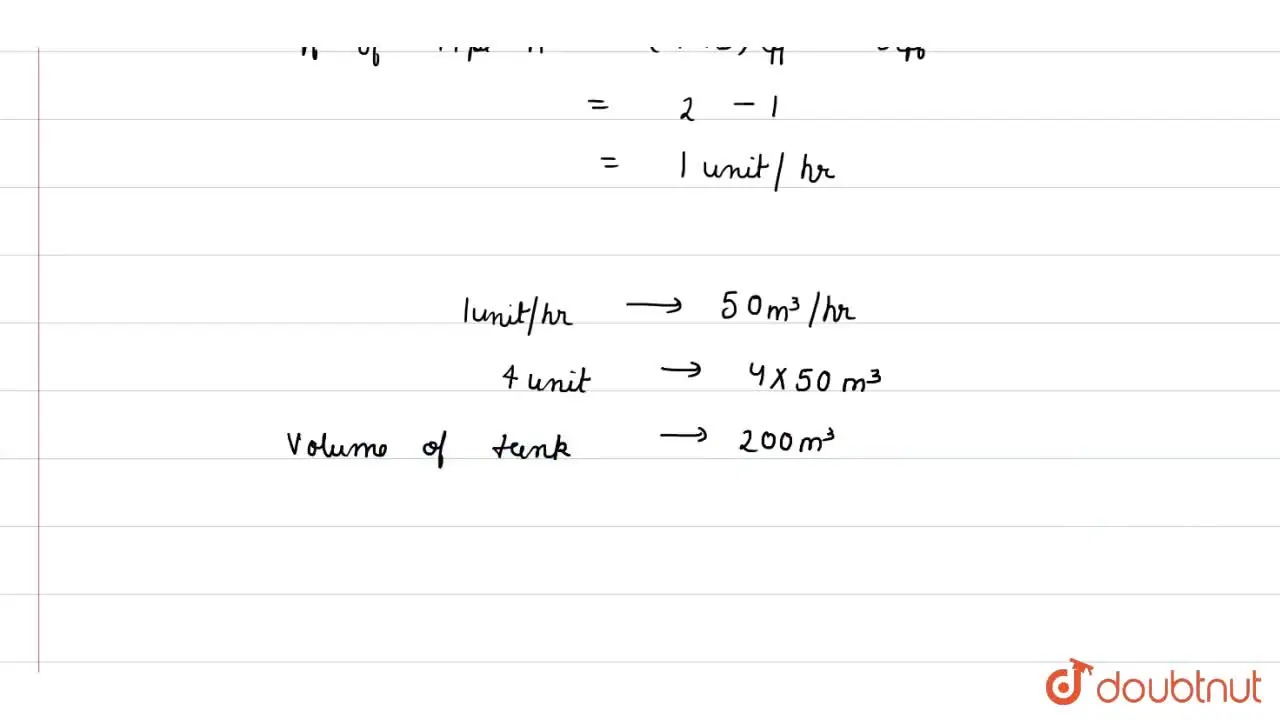 of
= 2 - 1
= 1 unit/hr
1unit/hr → 50m³/hr
4 unit → 4 X 50 m³
Volume of tank → 200m³
doubtnut